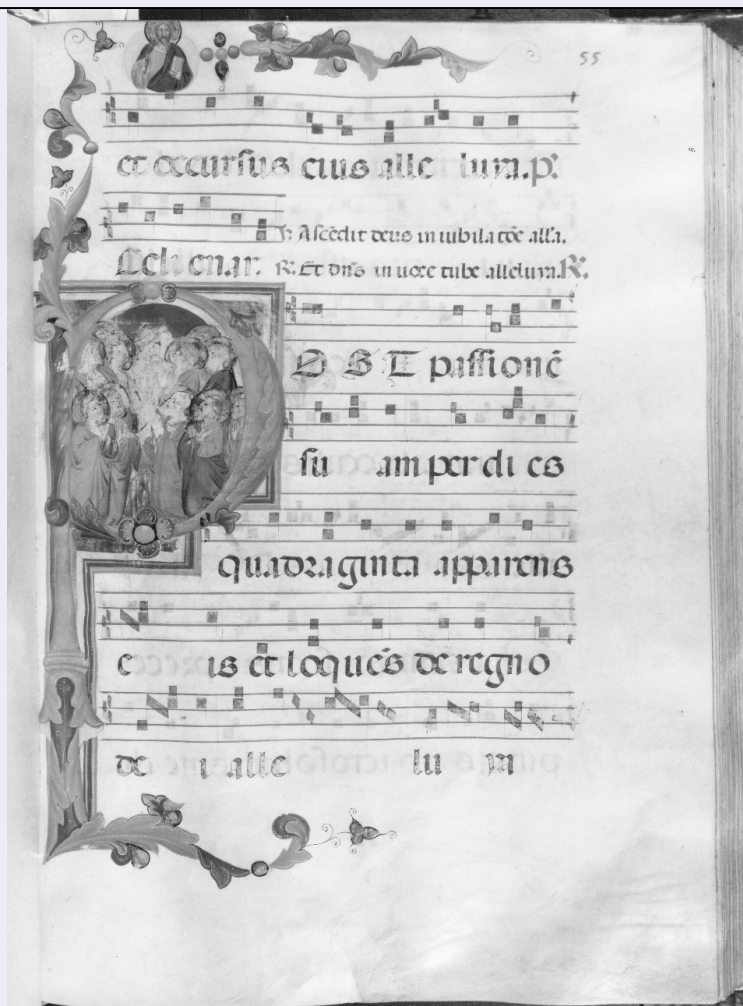 55
et occursus eius alle luya. p̄.
V. Ascēdit deus in iubilatōe all'a.
Celi enar. R. Et dn̄s in uoce tube alleluya. R.
POST passionē
su am per di es
quadraginta apparens
e is et loquēs de regno
de i alle lu ya